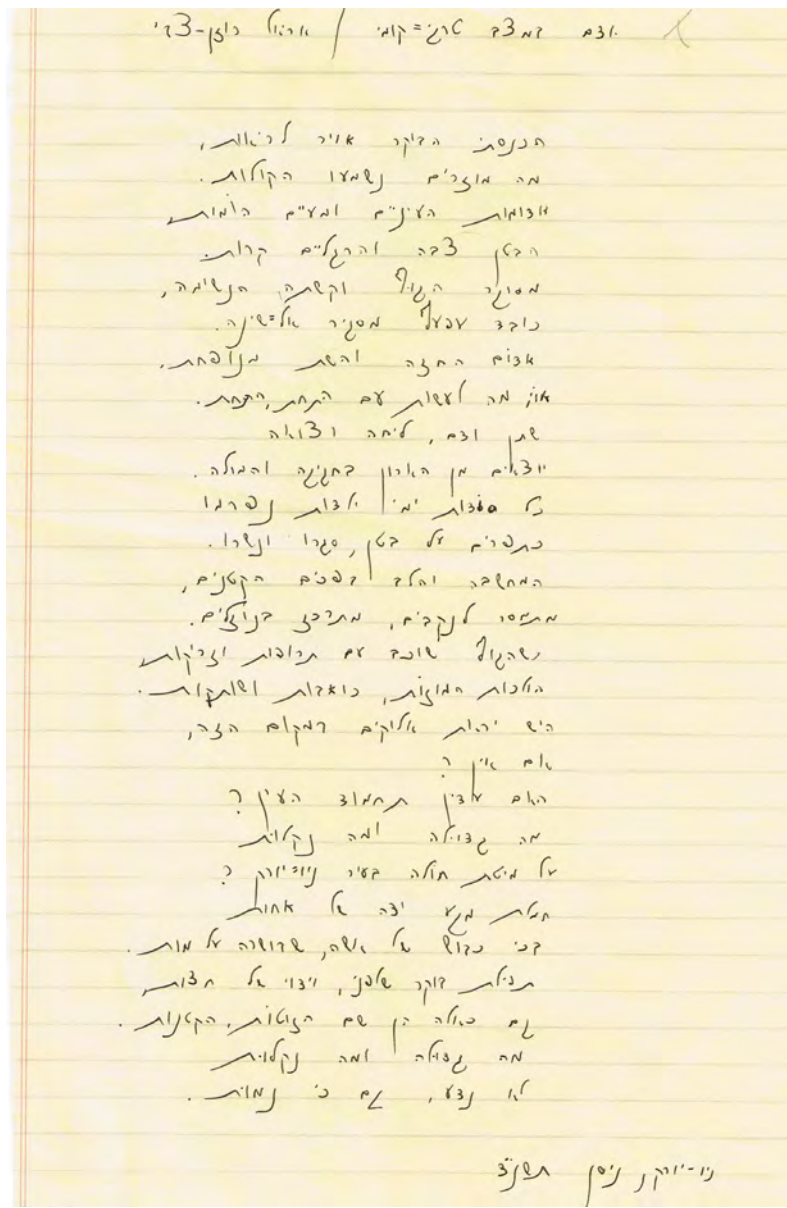 אדם במצב טרגי-קומי / אריאל רוזן-צבי
הכנסתי הבוקר אויר לריאות,
מה מוזרים נשמעו הקולות.
אדומות העיניים ומעיים הומות,
הבטן צבה והרגליים קרות.
מסוגר הגוף וקשתה הנשימה,
כובד עפעף מסגיר אל-שינה.
אדום החזה והשת מנופחת,
אוי, מה לעשות עם התחת, התחת.
שתן ודם, ליחה וצואה
יוצאים מן הארון בחגיגה והמולה.
כל סודות ימי ילדות נפרמו
כתפרים על בטן, סגרו ונשרו.
המחשבה והלב בפכים הקטנים,
מתיסר לנקבים, מתרכז בנוזלים.
כשהגוף שוכב עם תרופות וזריקות,
הולכות המוזות, כואבות ושותקות.
היש יראת אלוקים במקום הזה,
אם אין?
האם עדין תחמוד העין?
מה גדולה ומה נקלות
על מיטת חולה בעיר ניו-יורק?
חמלת מגע ידה של אחות
בכי כבוש של אשה, שבושרה על מות.
תפילת בוקר שלפני, וידוי של חצות,
גם כאלה הן שם הזוטות, הקטנות.
מה גדולה ומה נקלות
לא נדע, גם כי נמות.
ניו-יורק, ניסן תשנ"ד